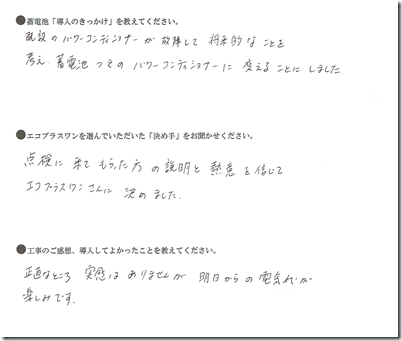 ●蓄電池「導入のきっかけ」を教えてください。
既設のパワーコンディショナーが故障して将来的なことを
考え.蓄電池つきのパワーコンディショナーに変えることにしました
●エコプラスワンを選んでいただいた「決め手」をお聞かせください。
点検に来てもらった方の説明と熱意を信じて
エコプラスワンさんに決めました.
●工事のご感想、導入してよかったことを教えてください。
正直なところ実感はありませんが明日からの電気代が
楽しみです.